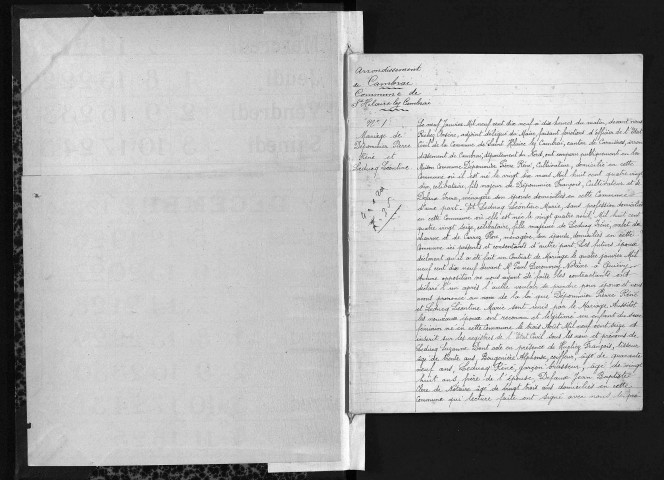 Arrondissement
de Cambrai
Commune de
St Hilaire lez Cambrai
No 1
Mariage de
Déponmier Pierre
René et
Leducq Léontine
Le neuf Janvier Mil neuf cent dix neuf à dix heures du matin, devant nous
adjoint délégué du Maire, faisant fonctions d'officier de l'Etat
Civil de la Commune de Saint Hilaire lez Cambrai, canton de Carnières, arron
dissement de Cambrai, département du Nord, ont comparu publiquement en la
Maison Commune Pierre René, Cultivateur, domicilié en cette
Commune où il est né le vingt six mars Mil huit cent quatre vingt
dix, célibataire, fils majeur de François, Cultivateur et de
ménagère son épouse domiciliés en cette Commune
d'une part. Et Leducq Léontine Marie, sans profession domiciliée
en cette commune où elle est née le vingt quatre avril Mil huit cent
quatre vingt seize, célibataire, fille majeure de Leducq valet de
charrue et de ménagère, son épouse, domiciliés en cette
Commune ici présents et consentants d'autre part. Les futurs époux
déclarent qu'il a été fait un Contrat de Mariage le quatre janvier Mil
neuf cent dix neuf devant Me Paul Notaire à
Aucune opposition ne nous ayant été faite les contractants ont
déclaré l'un après l'autre vouloir se prendre pour époux et nous
avons prononcé au nom de la loi que Pierre René
et Leducq Léontine Marie sont unis par le Mariage. Aussitôt
les nouveaux époux ont reconnu et légitimé un enfant du sexe
féminin né en cette Commune le trois Août Mil neuf cent seize et
inscrit sur les registres de l'Etat Civil sous les nom et prénoms de
Leducq Suzanne. Dont acte en présence de François,
âgé de trente ans, Alphonse, coiffeur, âgé de quarante
neuf ans, Leducq René, garçon brasseur, âgé de vingt
huit ans, frère de l'épouse, Jean Baptiste
Clerc de Notaire âgé de vingt trois ans domiciliés en cette
Commune qui lecture faite ont signé avec nous